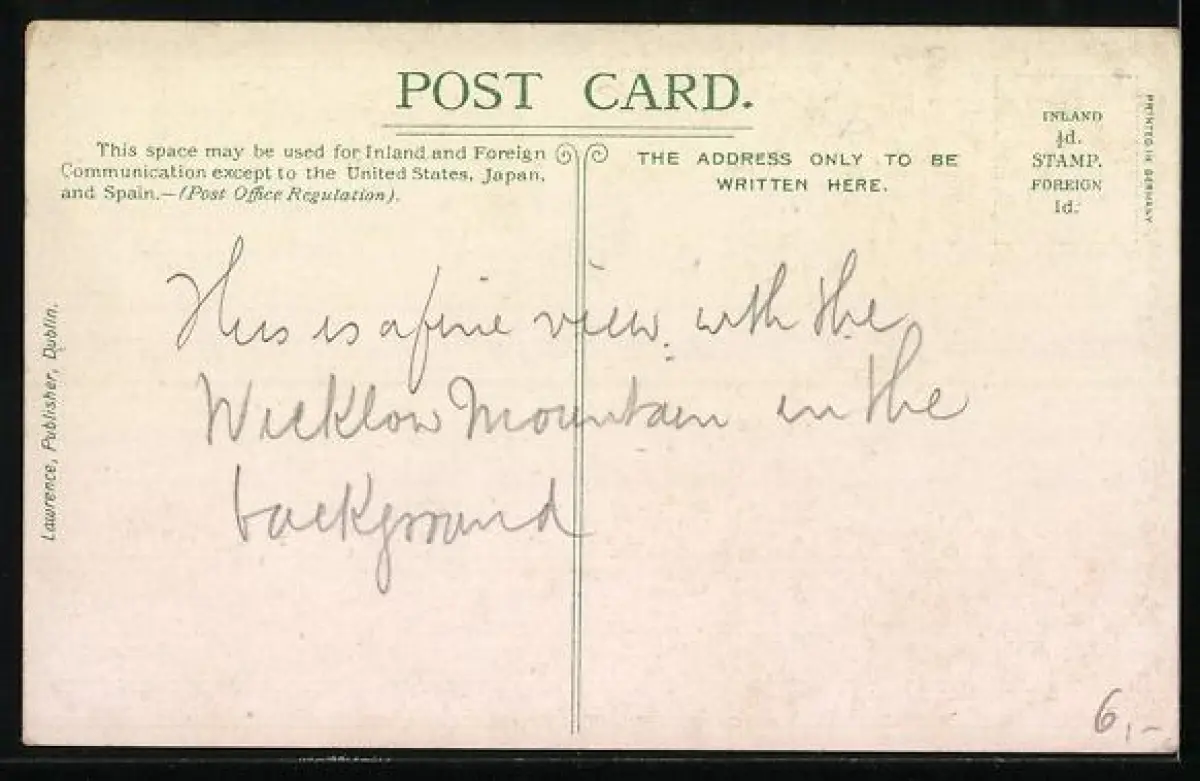 POST CARD.
This space may be used for Inland and Foreign
Communication except to the United States, Japan,
and Spain.—(Post Office Regulation).
THE ADDRESS ONLY TO BE
WRITTEN HERE.
INLAND
½d.
STAMP.
FOREIGN
1d.
PRINTED IN GERMANY
Lawrence, Publisher, Dublin.
This is a fine view. with the
Wicklow Mountain in the
background
6,-